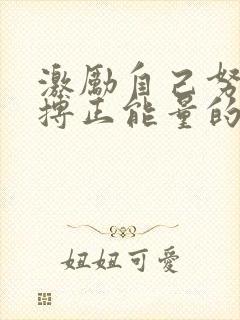 激励自己努
搏正能量的
妞妞可爱